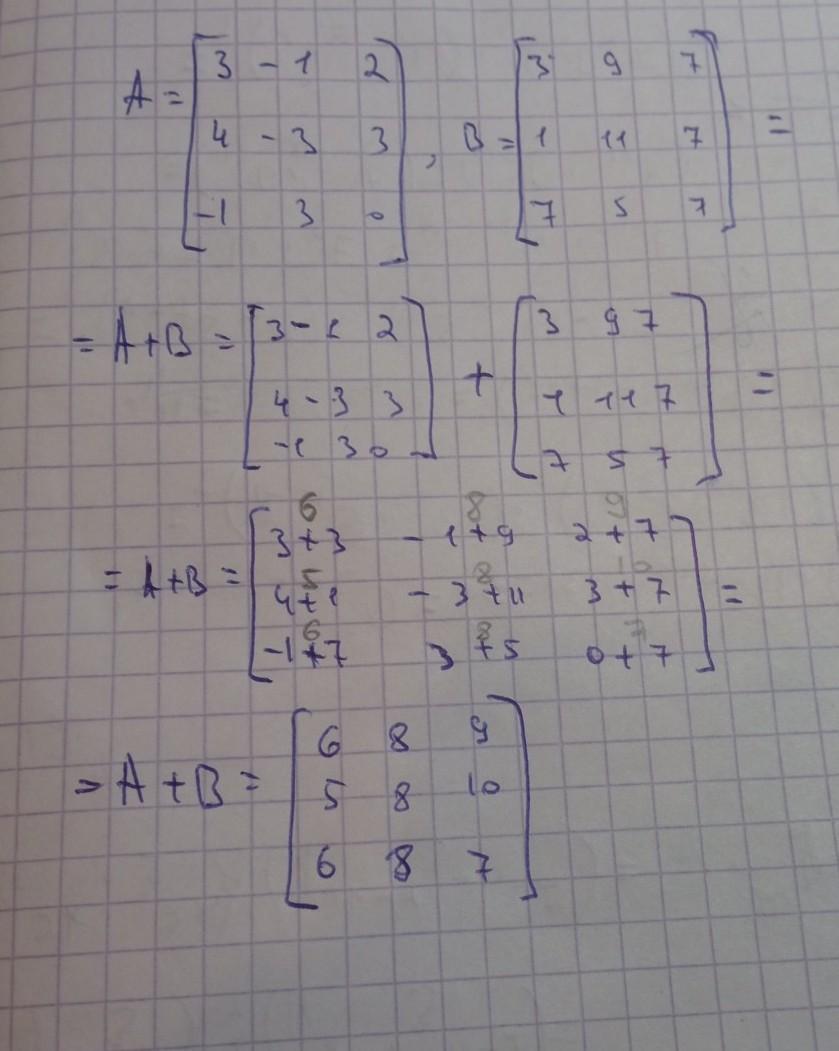 A = [ 3 -1 2
4 -3 3
-1 3 0 ] , B = [ 3 9 7
1 11 7
7 5 7 ] =
= A+B = [ 3 -1 2
4 -3 3
-1 3 0 ] + [ 3 9 7
1 11 7
7 5 7 ] =
6 8 9
= A+B = [ 3+3 -1+9 2+7
5 8 10
4+1 -3+11 3+7
6 8 7
-1+7 3+5 0+7 ] =
= A+B = [ 6 8 9
5 8 10
6 8 7 ]